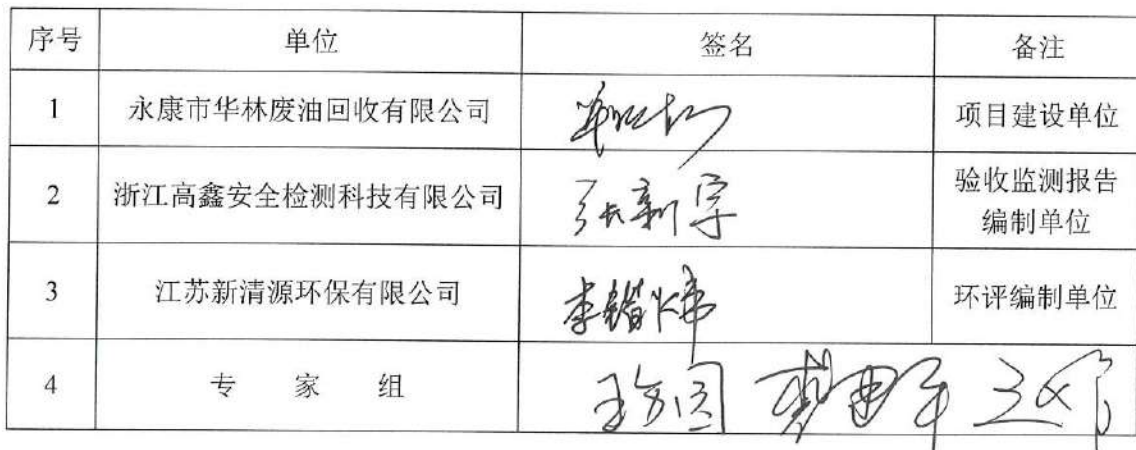 序号 单位 签名 备注
1 永康市华林废油回收有限公司 项目建设单位
2 浙江高鑫安全检测科技有限公司 张新宇 验收监测报告
编制单位
3 江苏新清源环保有限公司 李 炜 环评编制单位
4 专 家 组